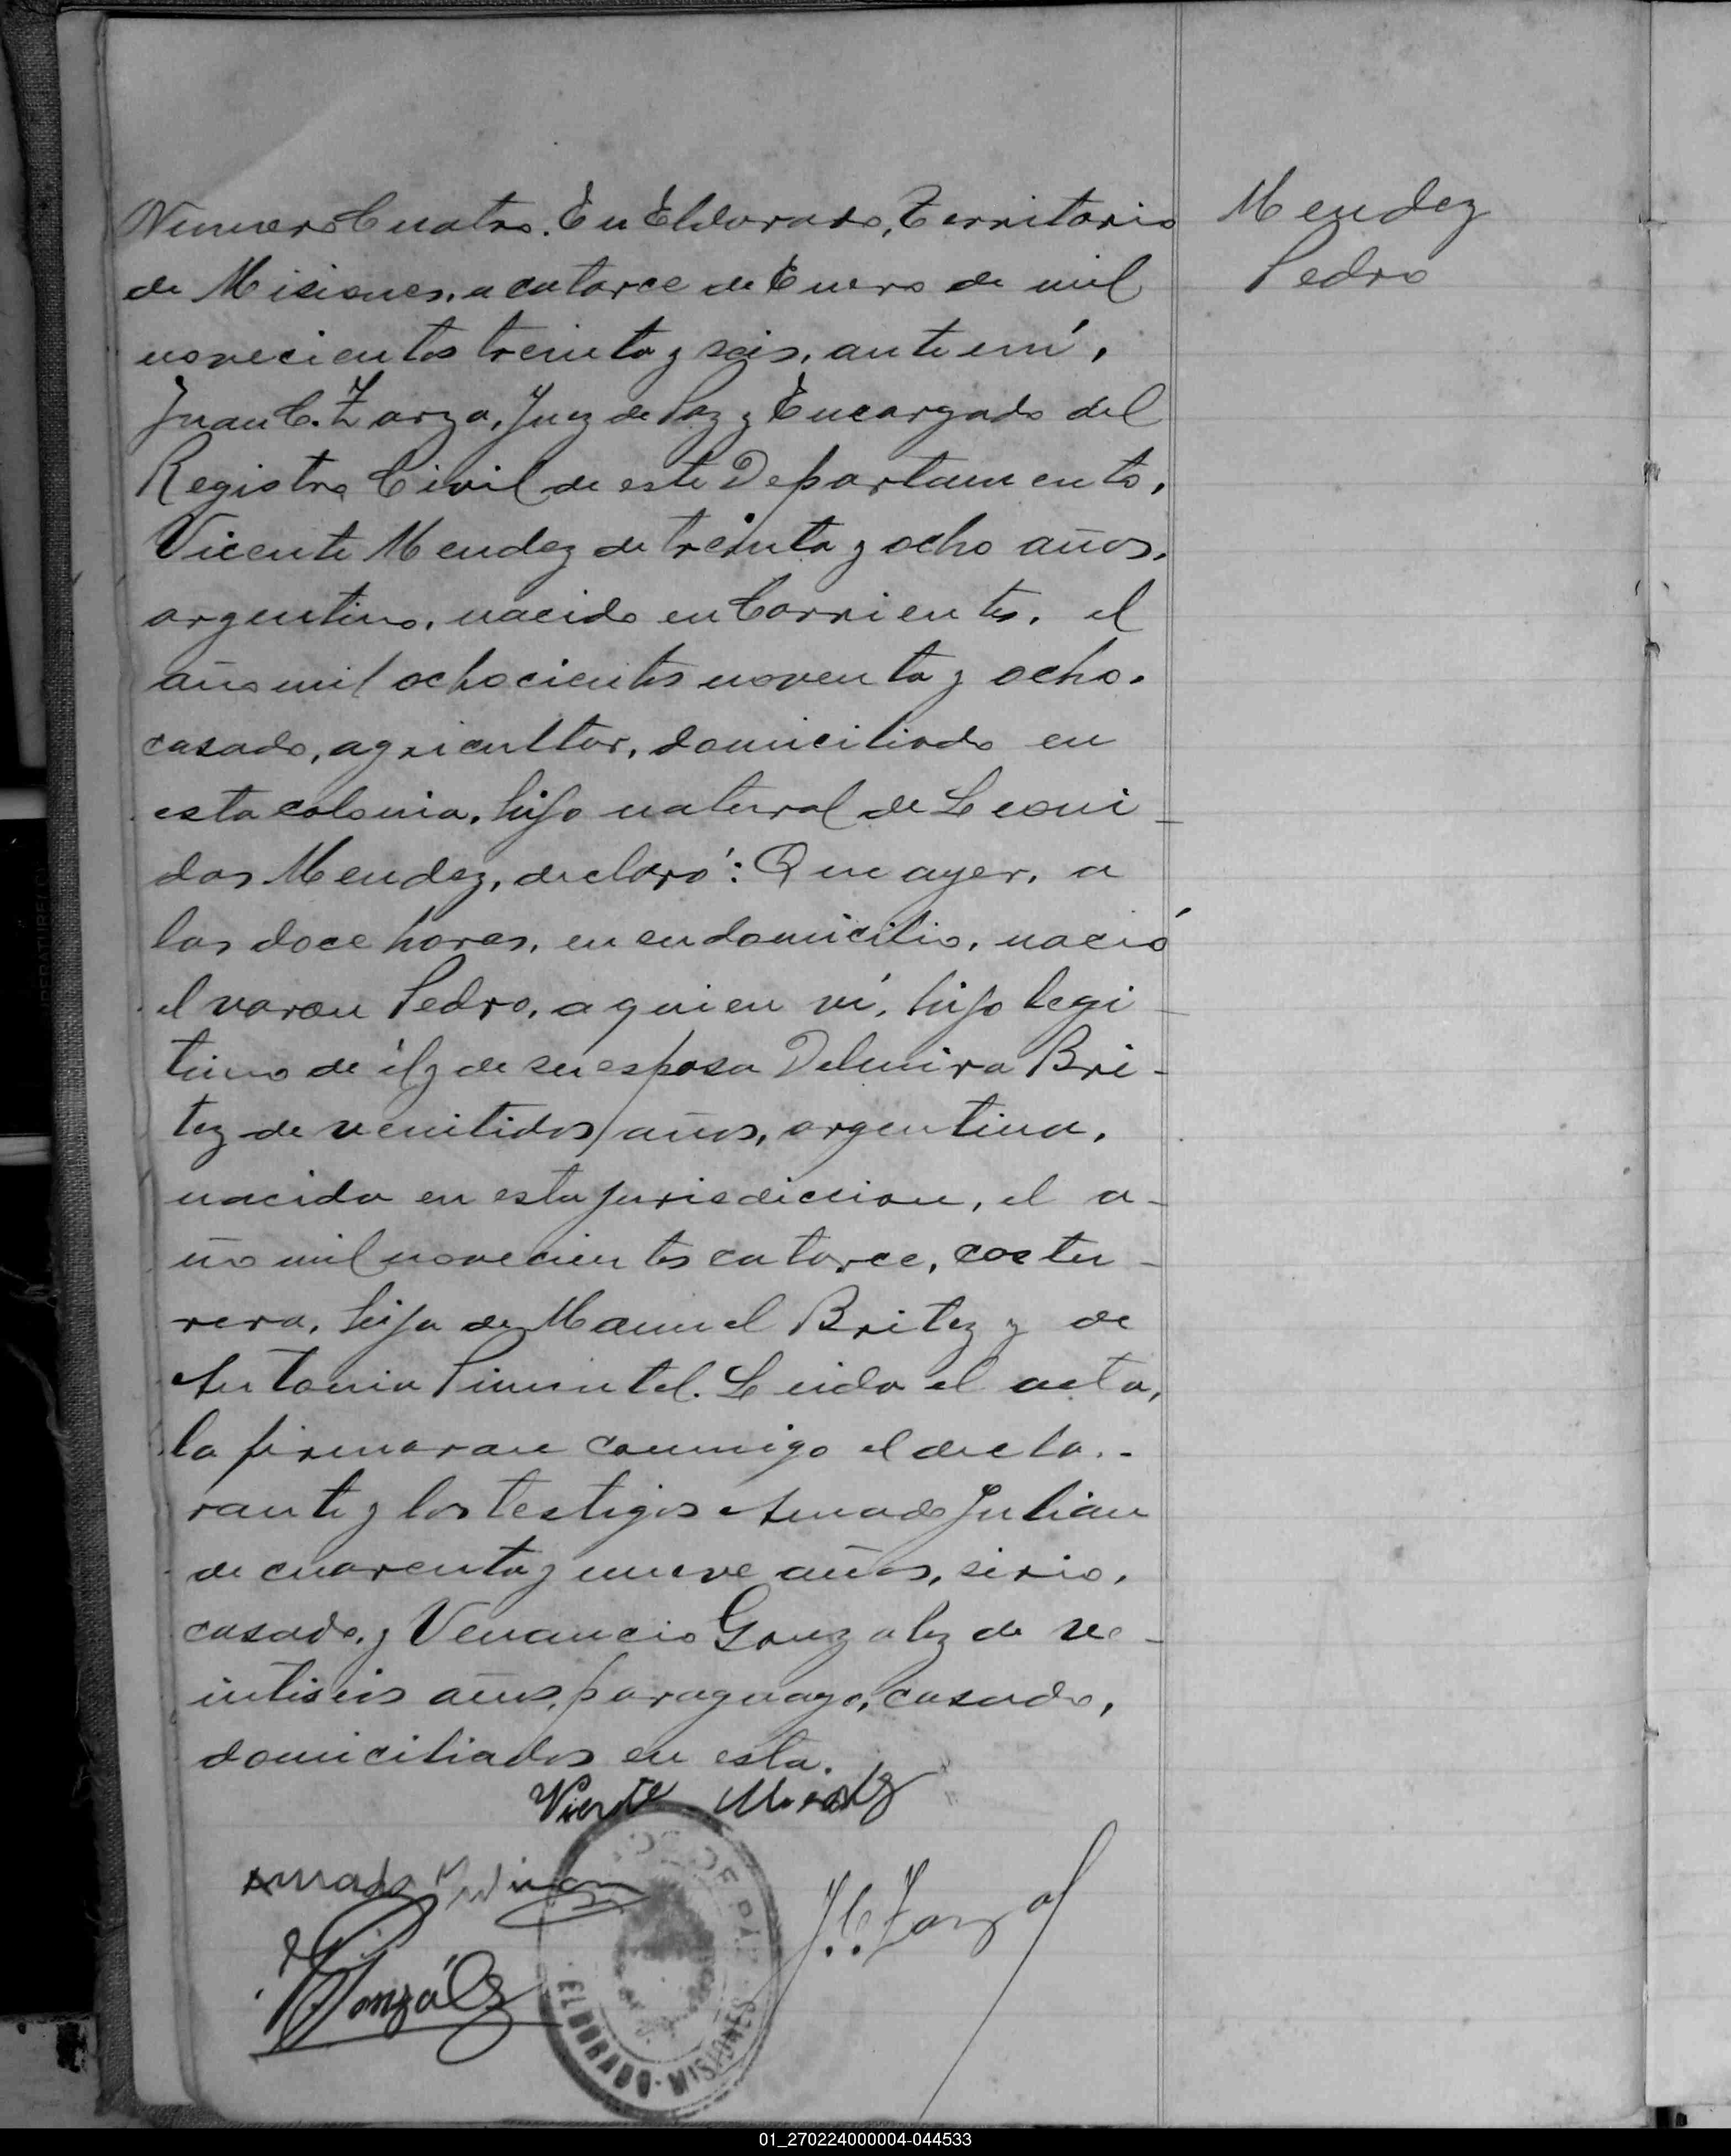 Numero Cuatro. En Eldorado, Territorio
de Misiones, a catorce de Enero de mil
novecientos treinta y seis, ante mí,
Juan C. Zarza, Juez de Paz y Encargado del
Registro Civil de este Departamento,
Vicente Mendez de treinta y ocho años,
argentino, nacido en Corrientes, el
año mil ochocientos noventa y ocho,
casado, agricultor, domiciliado en
esta colonia, hijo natural de Leoni-
das Mendez, declaró: Que ayer, a
las doce horas, en su domicilio, nació
el varon Pedro, a quien ví, hijo legi-
timo de él y de su esposa Delmira Bri-
tez de venitidos años, argentina,
nacida en esta jurisdiccion, el a-
ño mil novecientos catorce, costu-
rera, hija de Manuel Britez y de
Antonia Pimentel. Leida el acta,
la firmaron conmigo el decla.-
rante y los testigos Amado Julian
de cuarenta y nueve años, sirio,
casado, y Venancio Gonzalez de ve-
intiseis años, paraguayo, casado,
domiciliados en esta.
Mendez
Pedro
Vicente Mendez
Amado Julian
J. C. Zarza
González
ELDORADO - MISIONES
01_270224000004-044533